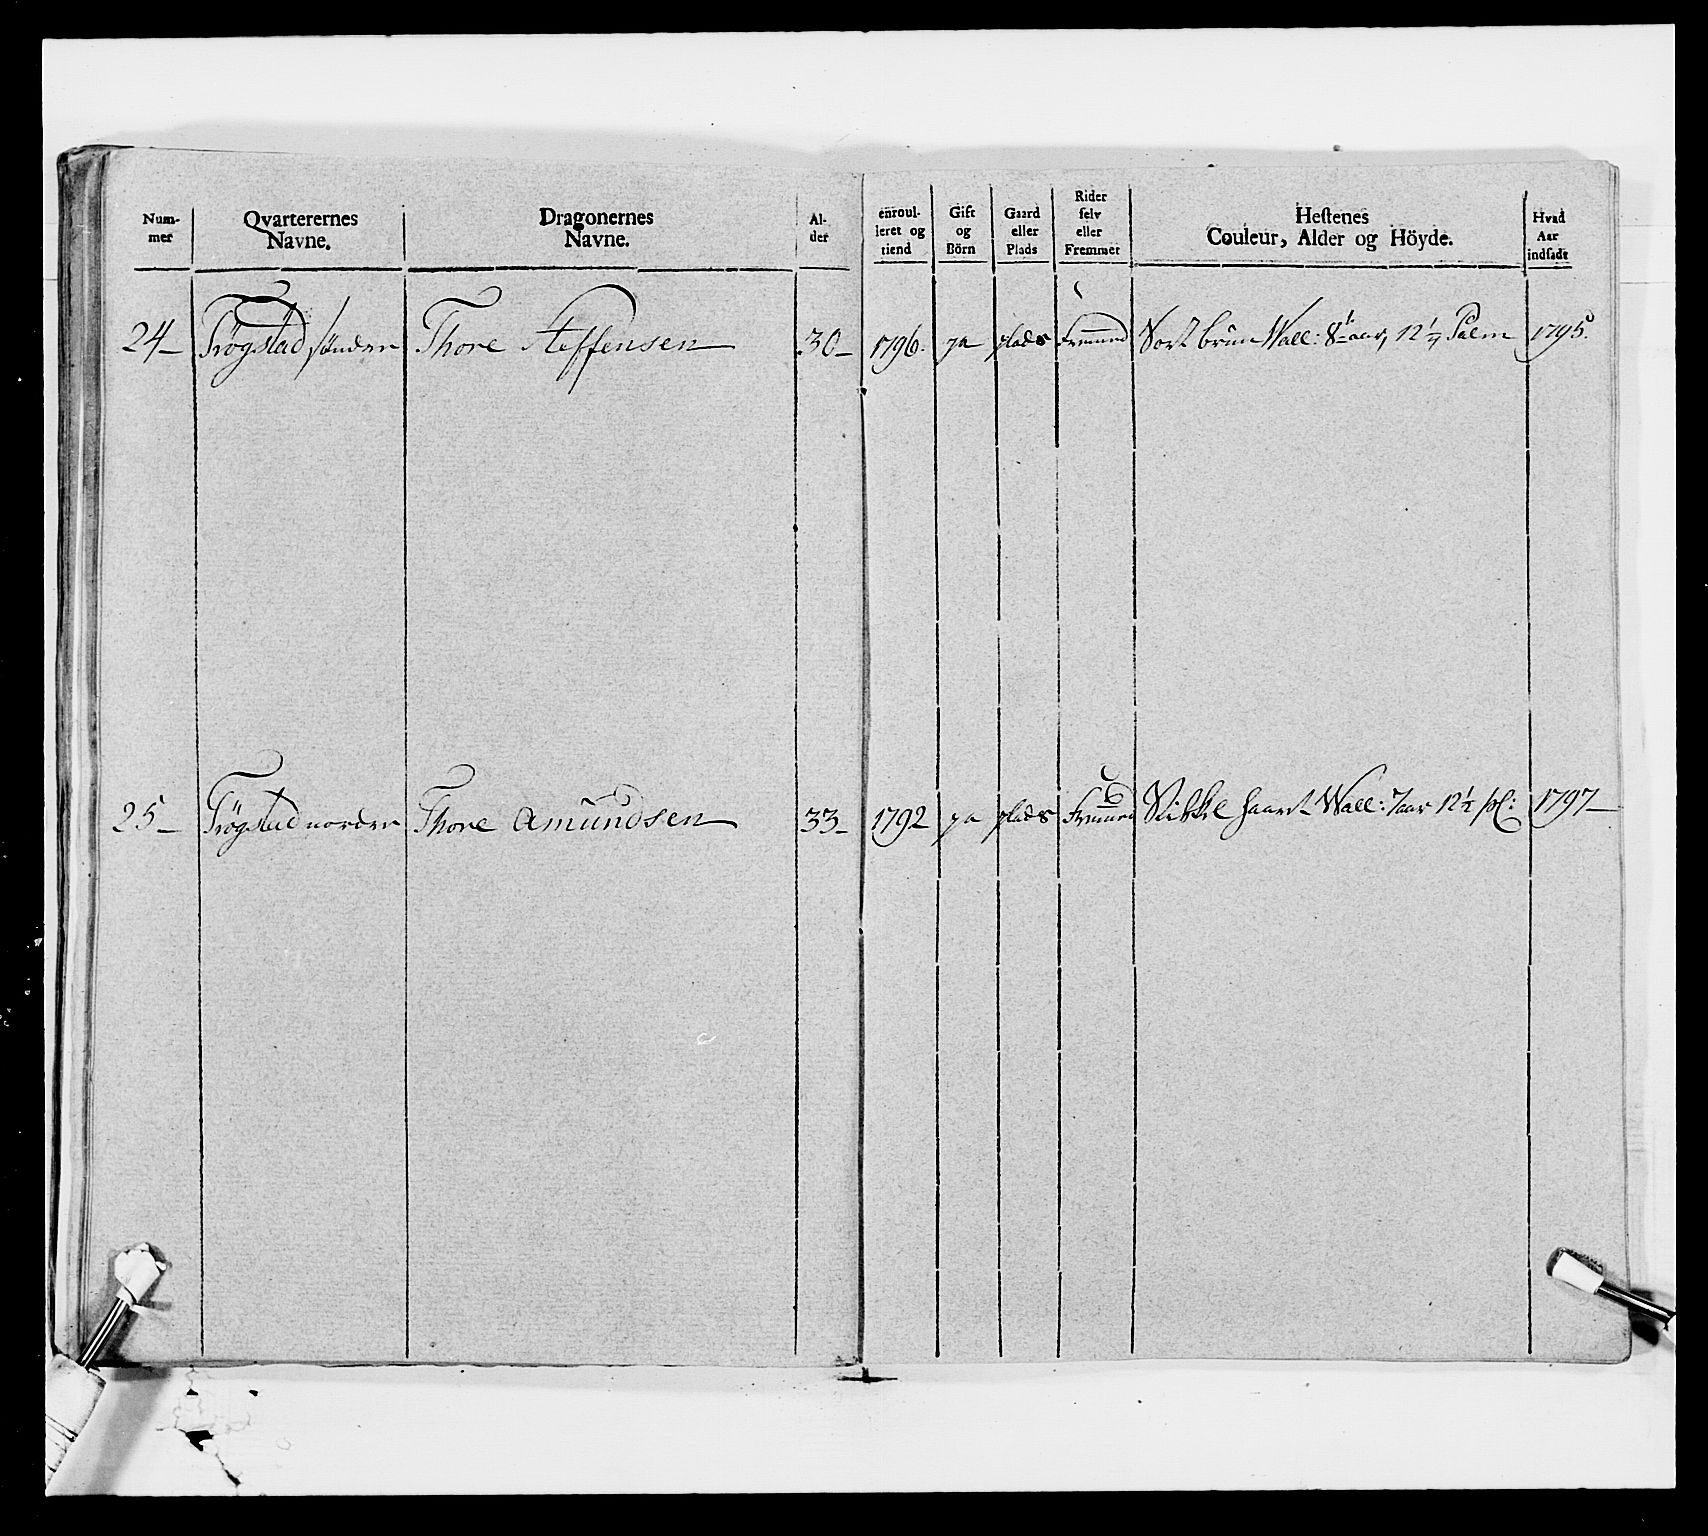 Num-
mer
Qvarterernes
Navne.
Dragonernes
Navne.
Al-
der
enroul-
leret og
tiend
Gift
og
Börn
Gaard
eller
Plads
Rider
selv
eller
Fremmet
Hestenes
Couleur, Alder og Höyde.
Hvad
Aar
indsadt
24 Trögstad sönder Thore Steffensen 30 1796. ja plads Fremmed Sort brun Wall: 8 aar, 12 1/4 Palm 1795.
25 Trögstad norder Thore Amundsen 33 1792 ja plads Fremmed haaret Wall: 7 aar 12 1/2 pl: 1797